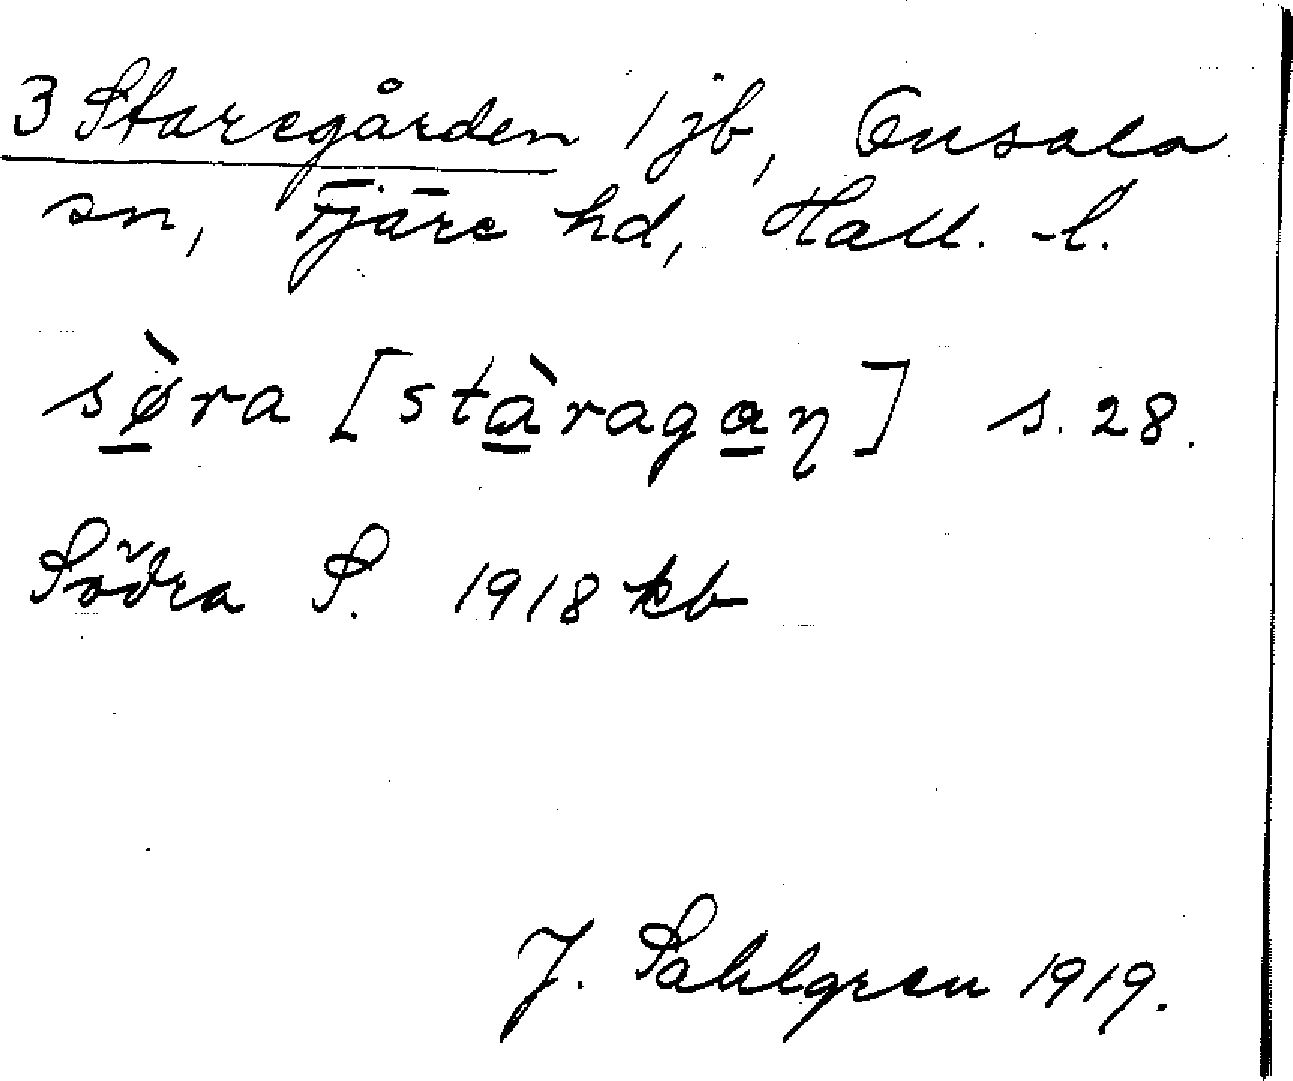 3 Staregården 1 jb, Onsala
sn, Fjäre hd, Hall. -l.
sø̠̀ra [stà̠raga̠ŋ] s. 28.
Södra S. 1918 kb
J. Sahlgren 1919.